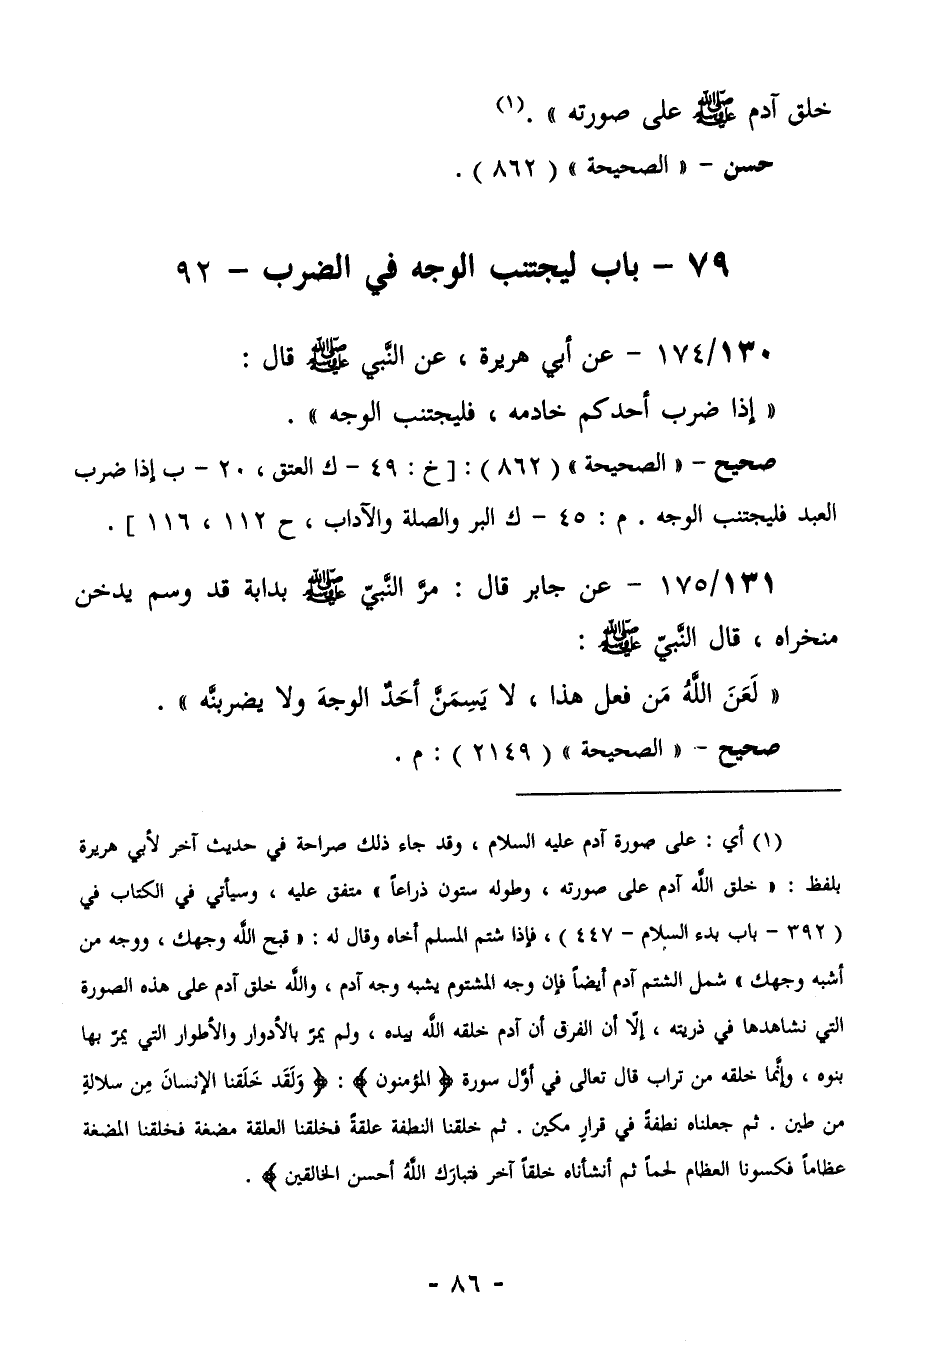 خلق آدم ﷺ على صورته » .(١)
حسن – « الصحيحة » ( ٨٦٢ ) .
٧٩ – باب ليجتنب الوجه في الضرب – ٩٢
١٧٤/١٣٠ – عن أبي هريرة ، عن النَّبي ﷺ قال :
« إذا ضرب أحدكم خادمه ، فليجتنب الوجه » .
صحيح – « الصحيحة » ( ٨٦٢ ) : [ خ : ٤٩ – ك العتق ، ٢٠ – ب إذا ضرب
العبد فليجتنب الوجه . م : ٤٥ – ك البر والصلة والآداب ، ح ١١٢ ، ١١٦ ] .
١٧٥/١٣١ – عن جابر قال : مرَّ النَّبيّ ﷺ بدابة قد وسم يدخن
منخراه ، قال النَّبيّ ﷺ :
« لَعَنَ اللَّهُ مَن فعل هذا ، لا يَسِمَنَّ أحَدٌ الوجهَ ولا يضربنَّه » .
صحيح – « الصحيحة » ( ٢١٤٩ ) : م .
(١) أي : على صورة آدم عليه السلام ، وقد جاء ذلك صراحة في حديث آخر لأبي هريرة
بلفظ : « خلق اللَّه آدم على صورته ، وطوله ستون ذراعاً » متفق عليه ، وسيأتي في الكتاب في
( ٣٩٢ – باب بدء السلام – ٤٤٧ ) ، فإذا شتم المسلم أخاه وقال له : « قبح اللَّه وجهك ، ووجه من
أشبه وجهك » شمل الشتم آدم أيضاً فإن وجه المشتوم يشبه وجه آدم ، واللَّه خلق آدم على هذه الصورة
التي نشاهدها في ذريته ، إلّا أن الفرق أن آدم خلقه اللَّه بيده ، ولم يمرّ بالأدوار والأطوار التي يمرّ بها
بنوه ، وإنَّما خلقه من تراب قال تعالى في أوَّل سورة ﴿ المؤمنون ﴾ : ﴿ وَلَقَد خَلَقنا الإنسانَ مِن سلالةٍ
من طين . ثم جعلناه نطفةً في قرارٍ مكين . ثم خلقنا النطفة علقةً فخلقنا العلقة مضغة فخلقنا المضغة
عظاماً فكسونا العظام لحماً ثم أنشأناه خلقاً آخر فتبارَك اللَّهُ أحسن الخالقين ﴾ .
- ٨٦ -